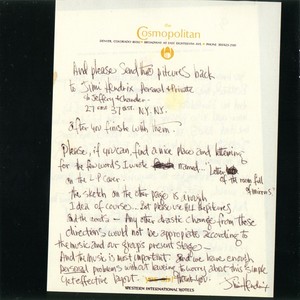 the
Cosmopolitan
And please send the pictures back
to Jimi Hendrix Personal & Private
℅ Jeffery & Chandler
27 East 37 St. N.Y. N.Y.
after you finish with them.
Please, if you can find a nice place and lettering
for the few words I wrote named.. "Letter
of the room full
of mirrors"
on the L P cover.
The sketch on the other page is a rough
Idea of course... but please use ALL the pictures
and the words — Any other drastic change from these
directions would not be appropriate according to
the music and our groups present stage —
And the music is most important. And we have enough
personal problems without having to worry about this simple
yet effective layout.
Thank you.
Jimi Hendrix
WESTERN INTERNATIONAL HOTELS